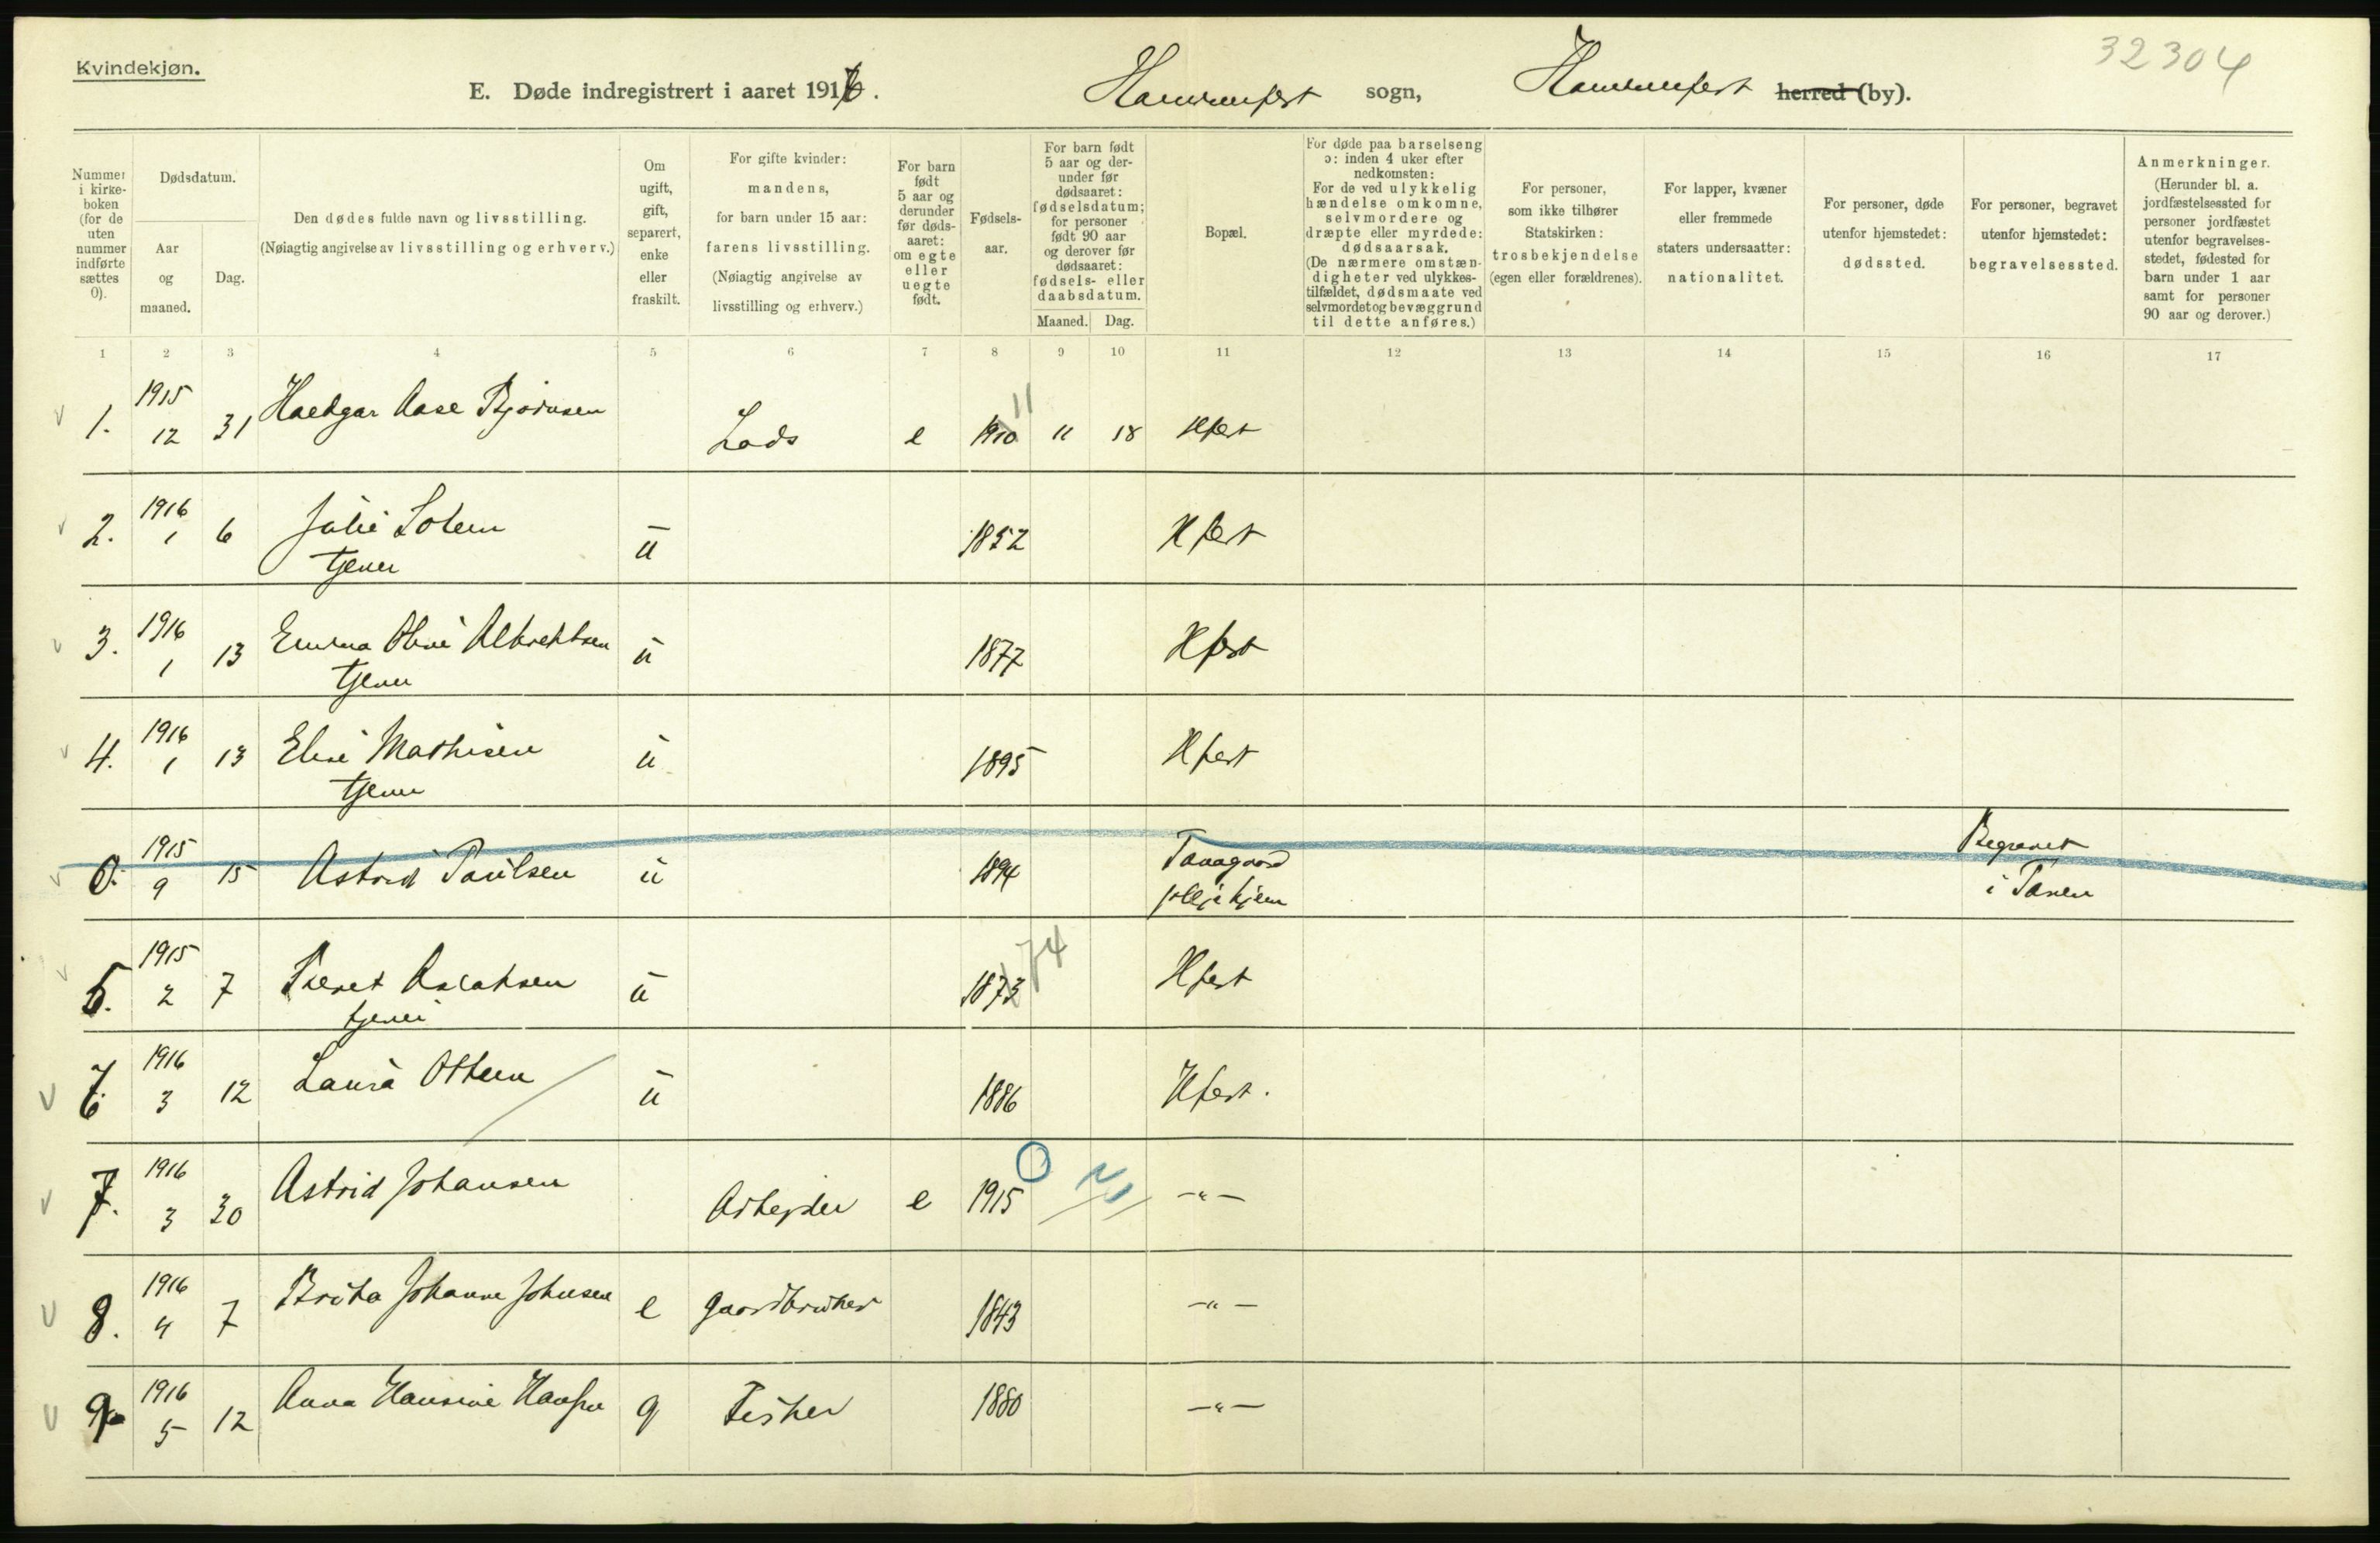 Kvindekjøn.
32304
E. Døde indregistrert i aaret 1916. Hammerfest sogn, Hammerfest herred (by).
Nummer i kirkeboken (for de uten nummer indførte sættes 0).
Dødsdatum.
Aar og maaned.
Dag.
Den dødes fulde navn og livsstilling.
(Nøiagtig angivelse av livsstilling og erhverv.)
Om ugift, gift, separert, enke eller fraskilt.
For gifte kvinder: mandens, for barn under 15 aar: farens livsstilling. (Nøiagtig angivelse av livsstilling og erhverv.)
For barn født 5 aar og derunder før dødsaaret: om egte eller uegte født.
Fødselsaar.
For barn født 5 aar og derunder før dødsaaret: fødselsdatum; for personer født 90 aar og derover før dødsaaret: fødsels- eller daabsdatum.
Maaned. Dag.
Bopæl.
For døde paa barselseng ɔ: inden 4 uker efter nedkomsten: For de ved ulykkelig hændelse omkomne, selvmordere og dræpte eller myrdede: dødsaarsak. (De nærmere omstændigheter ved ulykkestilfældet, dødsmaate ved selvmordet og bevæggrund til dette anføres.)
For personer, som ikke tilhører Statskirken: trosbekjendelse (egen eller forældrenes).
For lapper, kvæner eller fremmede staters undersaatter: nationalitet.
For personer, døde utenfor hjemstedet: dødssted.
For personer, begravet utenfor hjemstedet: begravelsessted.
Anmerkninger. (Herunder bl. a. jordfæstelsessted for personer jordfæstet utenfor begravelsesstedet, fødested for barn under 1 aar samt for personer 90 aar og derover.)
1 2 3 4 5 6 7 8 9 10 11 12 13 14 15 16 17
1. 1915 12 31 Aase Bjørnsen Lods e 1910 11 11 18 Hfest
2. 1916 1 6 Julie Solem tjener u 1852 Hfest
3. 1916 1 13 Emma Oline Albrektsen tjener u 1877 Hfest
4. 1916 1 13 Elise Mathisen tjener u 1895 Hfest
0. 1915 9 15 Astrid Paulsen u 1894 Tanagaard pleiehjem Begravet i Tanen
5. 1915 2 7 Beret Aslaksen tjener u 1873 74 Hfest
6. 1916 3 12 Laura Olsen u 1886 Hfest.
7. 1916 3 30 Astrid Johansen Arbeider e 1915 0 -"-
8. 1916 4 7 Brita Johanne Johnsen e gaardbruker 1843 -"-
9. 1916 5 12 Anna Hansine Hansen g Fisker 1880 -"-